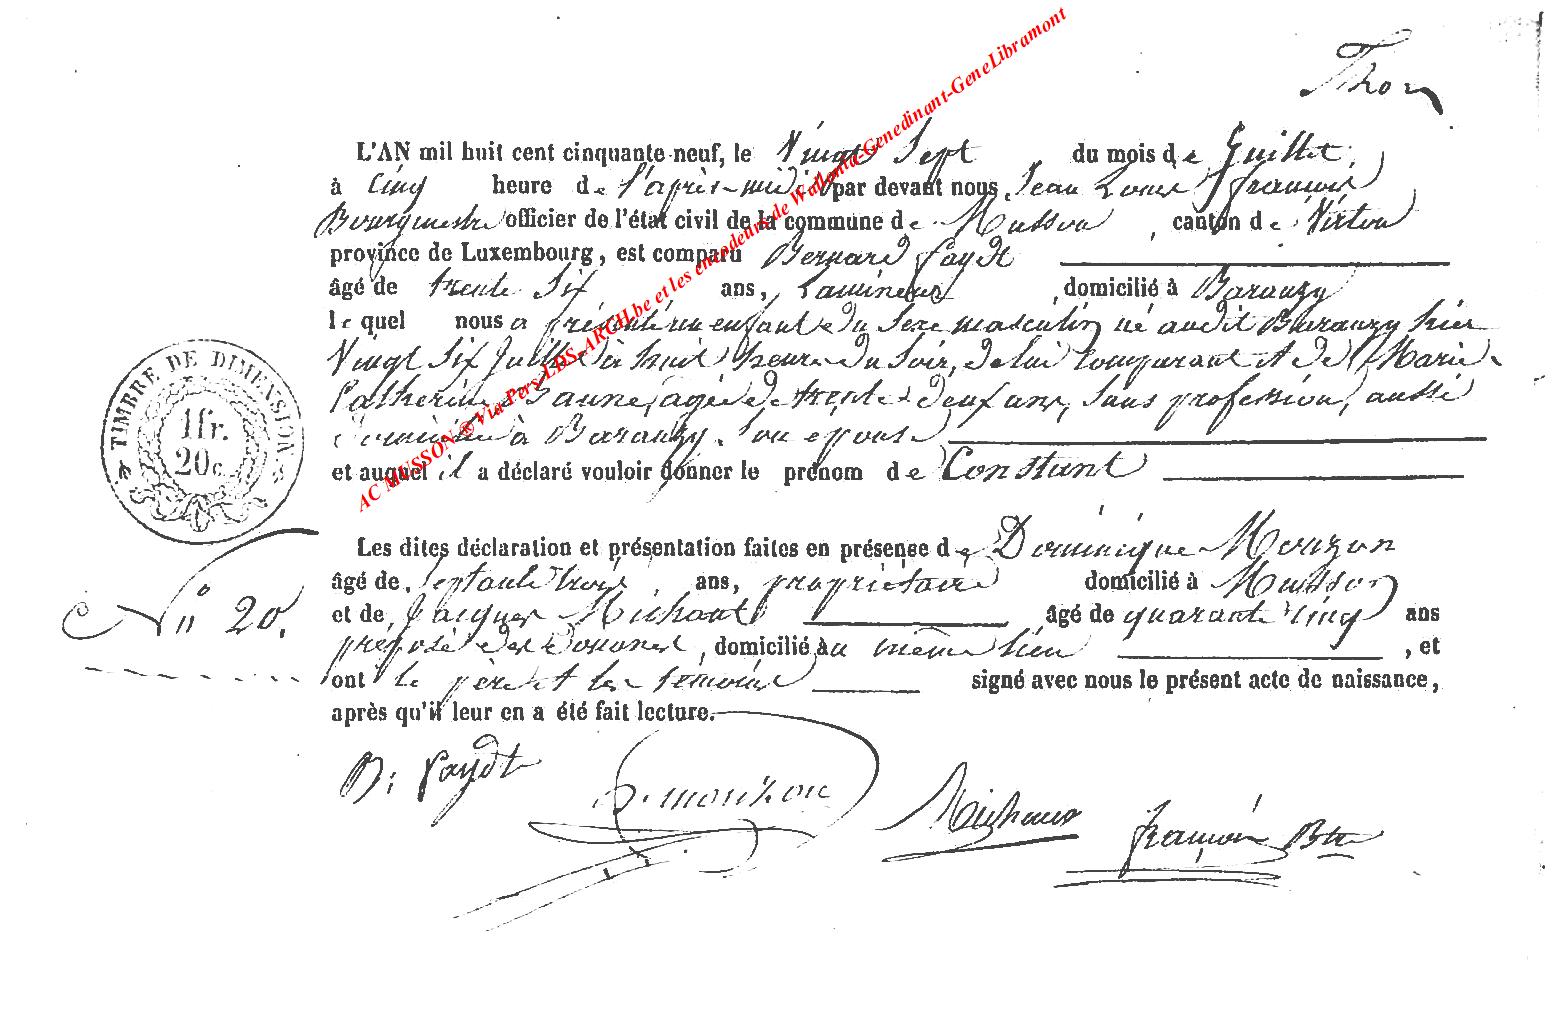 Thon
L'AN mil huit cent cinquante-neuf, le Vingt Sept du mois de Juillet,
à Cinq heure de l'après-midi par devant nous, Jean Louis François
Bourgmestre officier de l'état civil de la commune de Musson, canton de Virton
province de Luxembourg, est comparu Bernard Faydt
âgé de trente Six ans, Lamineur, domicilié à Baranzy
lequel nous a présenté un enfant du Sexe masculin né audit Baranzy hier
Vingt Six Juillet à huit heure du Soir, de lui Comparant et de Marie
Catherine agée de trente deux ans, Sans profession, aussi
domiciliée à Baranzy, Son épouse
et auquel il a déclaré vouloir donner le prénom de Constant
TIMBRE DE DIMENSION
1fr.
20c.
Les dites déclaration et présentation faites en présense de Dominique Mouzon
âgé de Septante trois ans, propriétaire domicilié à Musson
et de Jacques Michaux âgé de quarante Cinq ans
préposé des Douanes, domicilié au même lieu, et
ont le père et les témoins signé avec nous le présent acte de naissance,
après qu'il leur en a été fait lecture.
N° 20.
B. Faydt
D. mouzon
Michaux
François Btre
AC MUSSON ® Via Pers-LDS-ARCH.be et les encodeurs de Wallonia-Genedinant-GeneLibramont